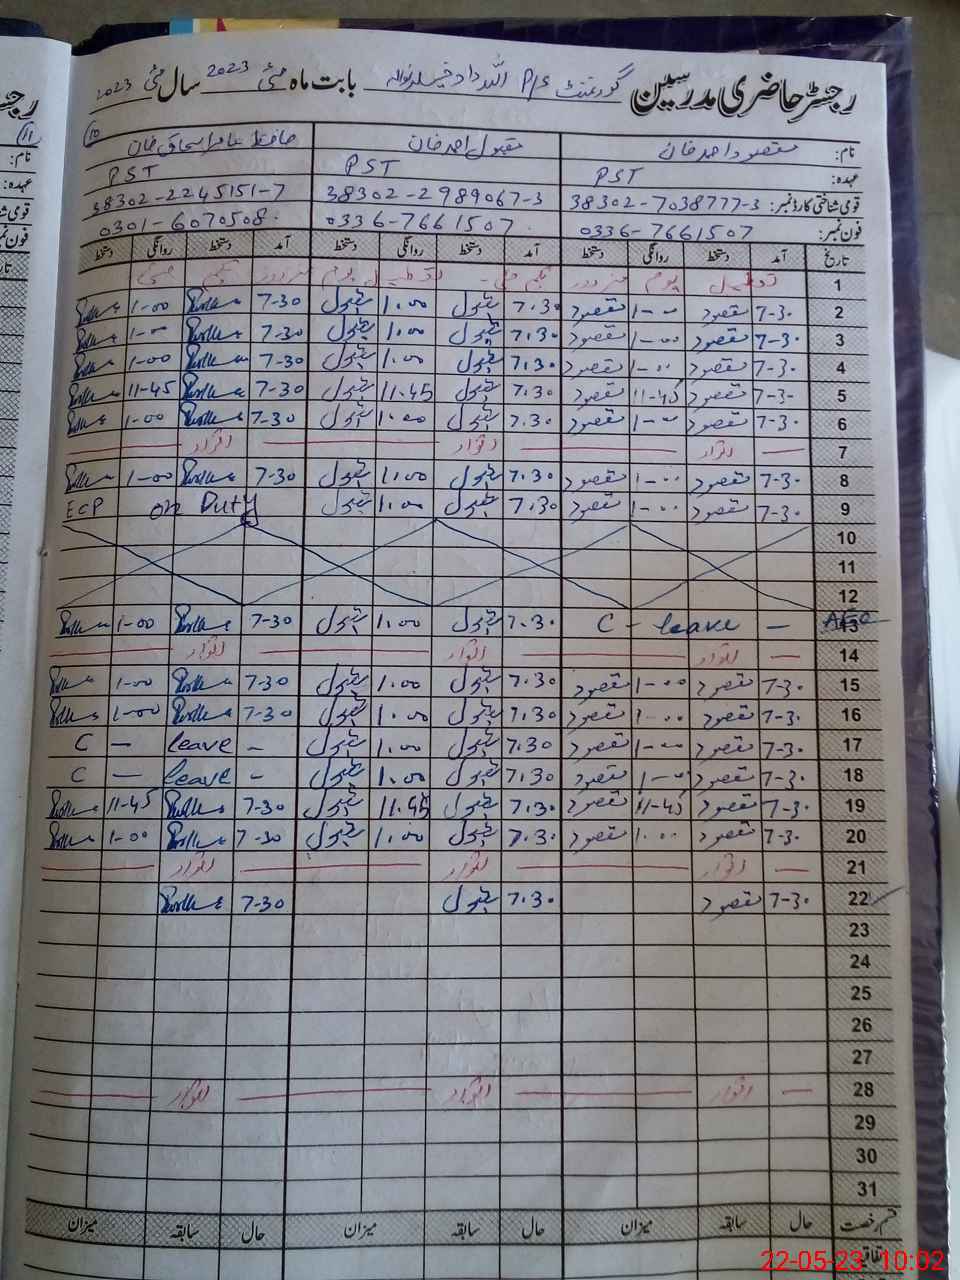 رجسٹر حاضری مدرسین گورنمنٹ P/S اللہ داد بابت ماہ مئی 2023 سال مئی 2023
10
نام: مقصود احمد خان مقبول احمد خان حافظ عامر اسحاق خان
عہدہ: PST PST PST
قومی شناختی کارڈ نمبر: 38302-7038777-3 38302-2989067-3 38302-2245151-7
فون نمبر: 0336-7661507 0336-7661507 0301-6070508
تاریخ آمد دستخط روانگی دستخط آمد دستخط روانگی دستخط آمد دستخط روانگی دستخط
1 تعطیل یوم مزدور یکم مئی تعطیل یوم مزدور یکم مئی
2 7-30 مقصود 1-00 مقصود 7.30 مقبول 1.00 مقبول 7-30 1-00
3 7-30 مقصود 1-00 مقصود 7.30 مقبول 1.00 مقبول 7-30 1-00
4 7-30 مقصود 1-00 مقصود 7.30 مقبول 1.00 مقبول 7-30 1-00
5 7-30 مقصود 11-45 مقصود 7.30 مقبول 11.45 مقبول 7-30 11-45
6 7-30 مقصود 1-00 مقصود 7.30 مقبول 1.00 مقبول 7-30 1-00
7 — اتوار — اتوار — اتوار —
8 7-30 مقصود 1-00 مقصود 7.30 مقبول 1.00 مقبول 7-30 1-00
9 7-30 مقصود 1-00 مقصود 7.30 مقبول 1.00 مقبول ECP on Duty
10
11
12
13 C - leave - 7.30 مقبول 1.00 مقبول 7-30 1-00
14 — اتوار — اتوار — اتوار —
15 7-30 مقصود 1-00 مقصود 7.30 مقبول 1.00 مقبول 7-30 1-00
16 7-30 مقصود 1-00 مقصود 7.30 مقبول 1.00 مقبول 7-30 1-00
17 7-30 مقصود 1-00 مقصود 7.30 مقبول 1.00 مقبول C - leave -
18 7-30 مقصود 1-00 مقصود 7.30 مقبول 1.00 مقبول C - leave -
19 7-30 مقصود 11-45 مقصود 7.30 مقبول 11.45 مقبول 7-30 11-45
20 7-30 مقصود 1-00 مقصود 7.30 مقبول 1.00 مقبول 7-30 1-00
21 — اتوار — اتوار — اتوار —
22 7-30 مقصود 7.30 مقبول 7-30
23
24
25
26
27
28 — اتوار — اتوار — اتوار —
29
30
31
قسم رخصت حال سابقہ میزان حال سابقہ میزان حال سابقہ میزان
اتفاقیہ
22-05-23 10:02